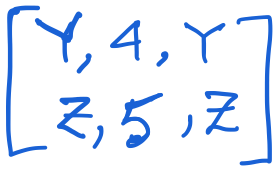 [Y, 4, Y
Z, 5, Z]